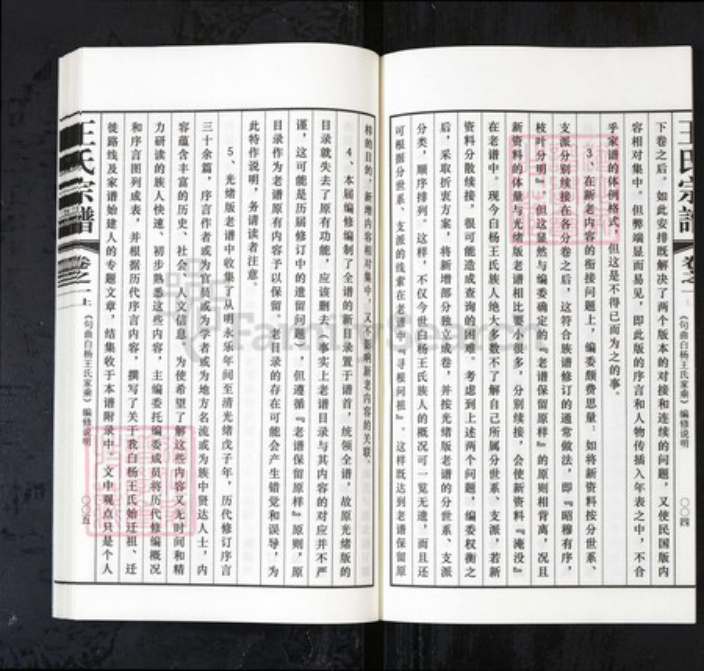 王氏宗譜
卷之一
上
《句曲白杨王氏家乘》编修说明
〇〇四
下卷之后。如此安排既解决了两个版本的对接和连续的问题，又使民国版内
容相对集中。但弊端显而易见，即此版的序言和人物传插入年表之中，不合
乎家谱的体例格式，但这是不得已而为之的事。
3、在新老内容的衔接问题上，编委颇费思量：如将新资料按分世系、
支派分别续接在各分卷之后，这符合族谱修订的通常做法，即『昭穆有序，
枝叶分明』。但这显然与编委确定的『老谱保留原样』的原则相背离，况且
新资料的体量与光绪版老谱相比要小很多，分别续接，会使新资料『淹没』
在老谱中。现今白杨王氏族人绝大多数不了解自己所属分世系、支派，若新
资料分散续接，很可能造成查询的困难。考虑到上述两个问题，编委权衡之
后，采取折衷方案，将新增部分独立成卷，并按光绪版老谱的分世系、支派
分类，顺序排列。这样，不仅今世白杨王氏族人的概况可一览无遗，而且还
可根据分世系、支派的线索在老谱中『寻根问祖』。这样既达到老谱保留原
样的目的，新增内容相对集中，又不影响新老内容的关联。
4、本届编修编制了全谱的新目录置于谱首，统领全谱，故原光绪版的
目录就失去了原有功能，应该删去（事实上老谱目录与其内容的对应并不严
谨，这可能是历届修订中的遗留问题），但遵循『老谱保留原样』原则，原
目录作为老谱原有内容予以保留。老目录的存在可能会产生错觉和误导，为
此特作说明，务请读者注意。
5、光绪版老谱中收集了从明永乐年间至清光绪戊子年，历代修订序言
三十余篇，序言作者或为官员或为学者或为地方名流或为族中贤达人士，内
容蕴含丰富的历史、社会、人文信息。为使希望了解这些内容又无时间和精
力研读的族人快速、初步熟悉这些内容，主编委托编委成员将历代修编概况
和序言图列成表，并根据历代序言内容，撰写了关于我白杨王氏始迁祖、迁
徙路线及家谱始建人的专题文章，结集收于本谱附录中。文中观点只是个人
王氏宗譜
卷之一
上
《句曲白杨王氏家乘》编修说明
〇〇五
FamilySearch